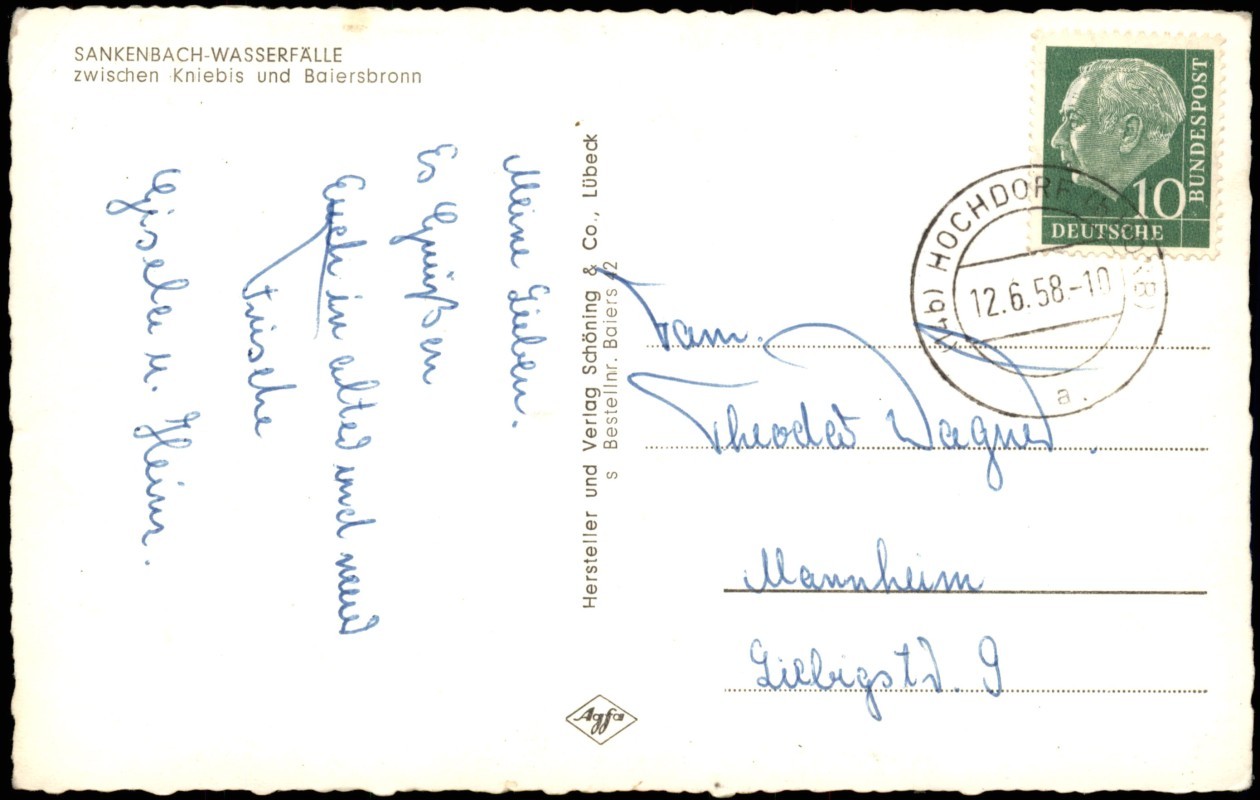 SANKENBACH-WASSERFÄLLE
zwischen Kniebis und Baiersbronn
Meine Lieben.
Es Grüßen
Euch in alter und neuer
Frische
Gisela u. Heinz.
Hersteller und Verlag Schöning & Co., Lübeck
s Bestellnr. Baiers 42
Agfa
BUNDESPOST
10
DEUTSCHE
HOCHDORF
12.6.58.-10
a
Fam.
Theodor Wagner.
Mannheim
Liebigstr. 9